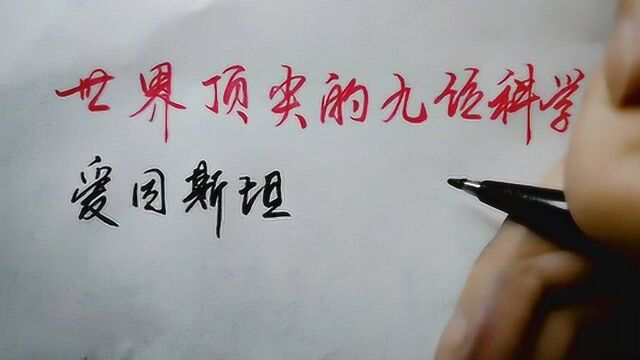 世界顶尖的九位科学
爱因斯坦